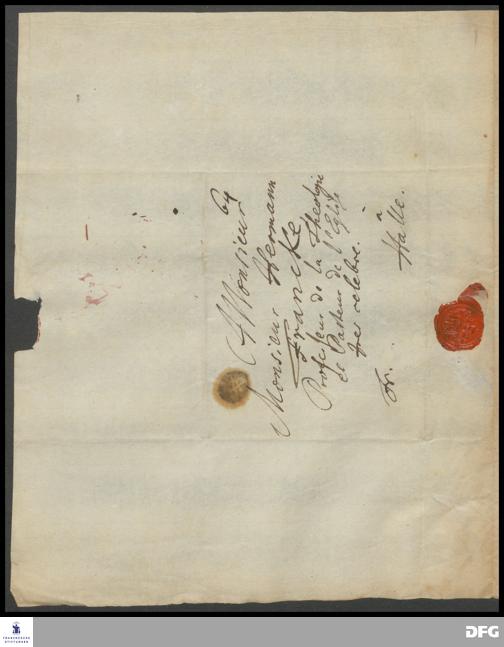 64
A Monsieur
Monsieur Hermann
Francke
Professeur de la Theologie
et Pasteur de l'Eglise
tres celebre.
Fr.
à
Halle.
FRANCKESCHE
STIFTUNGEN
DFG